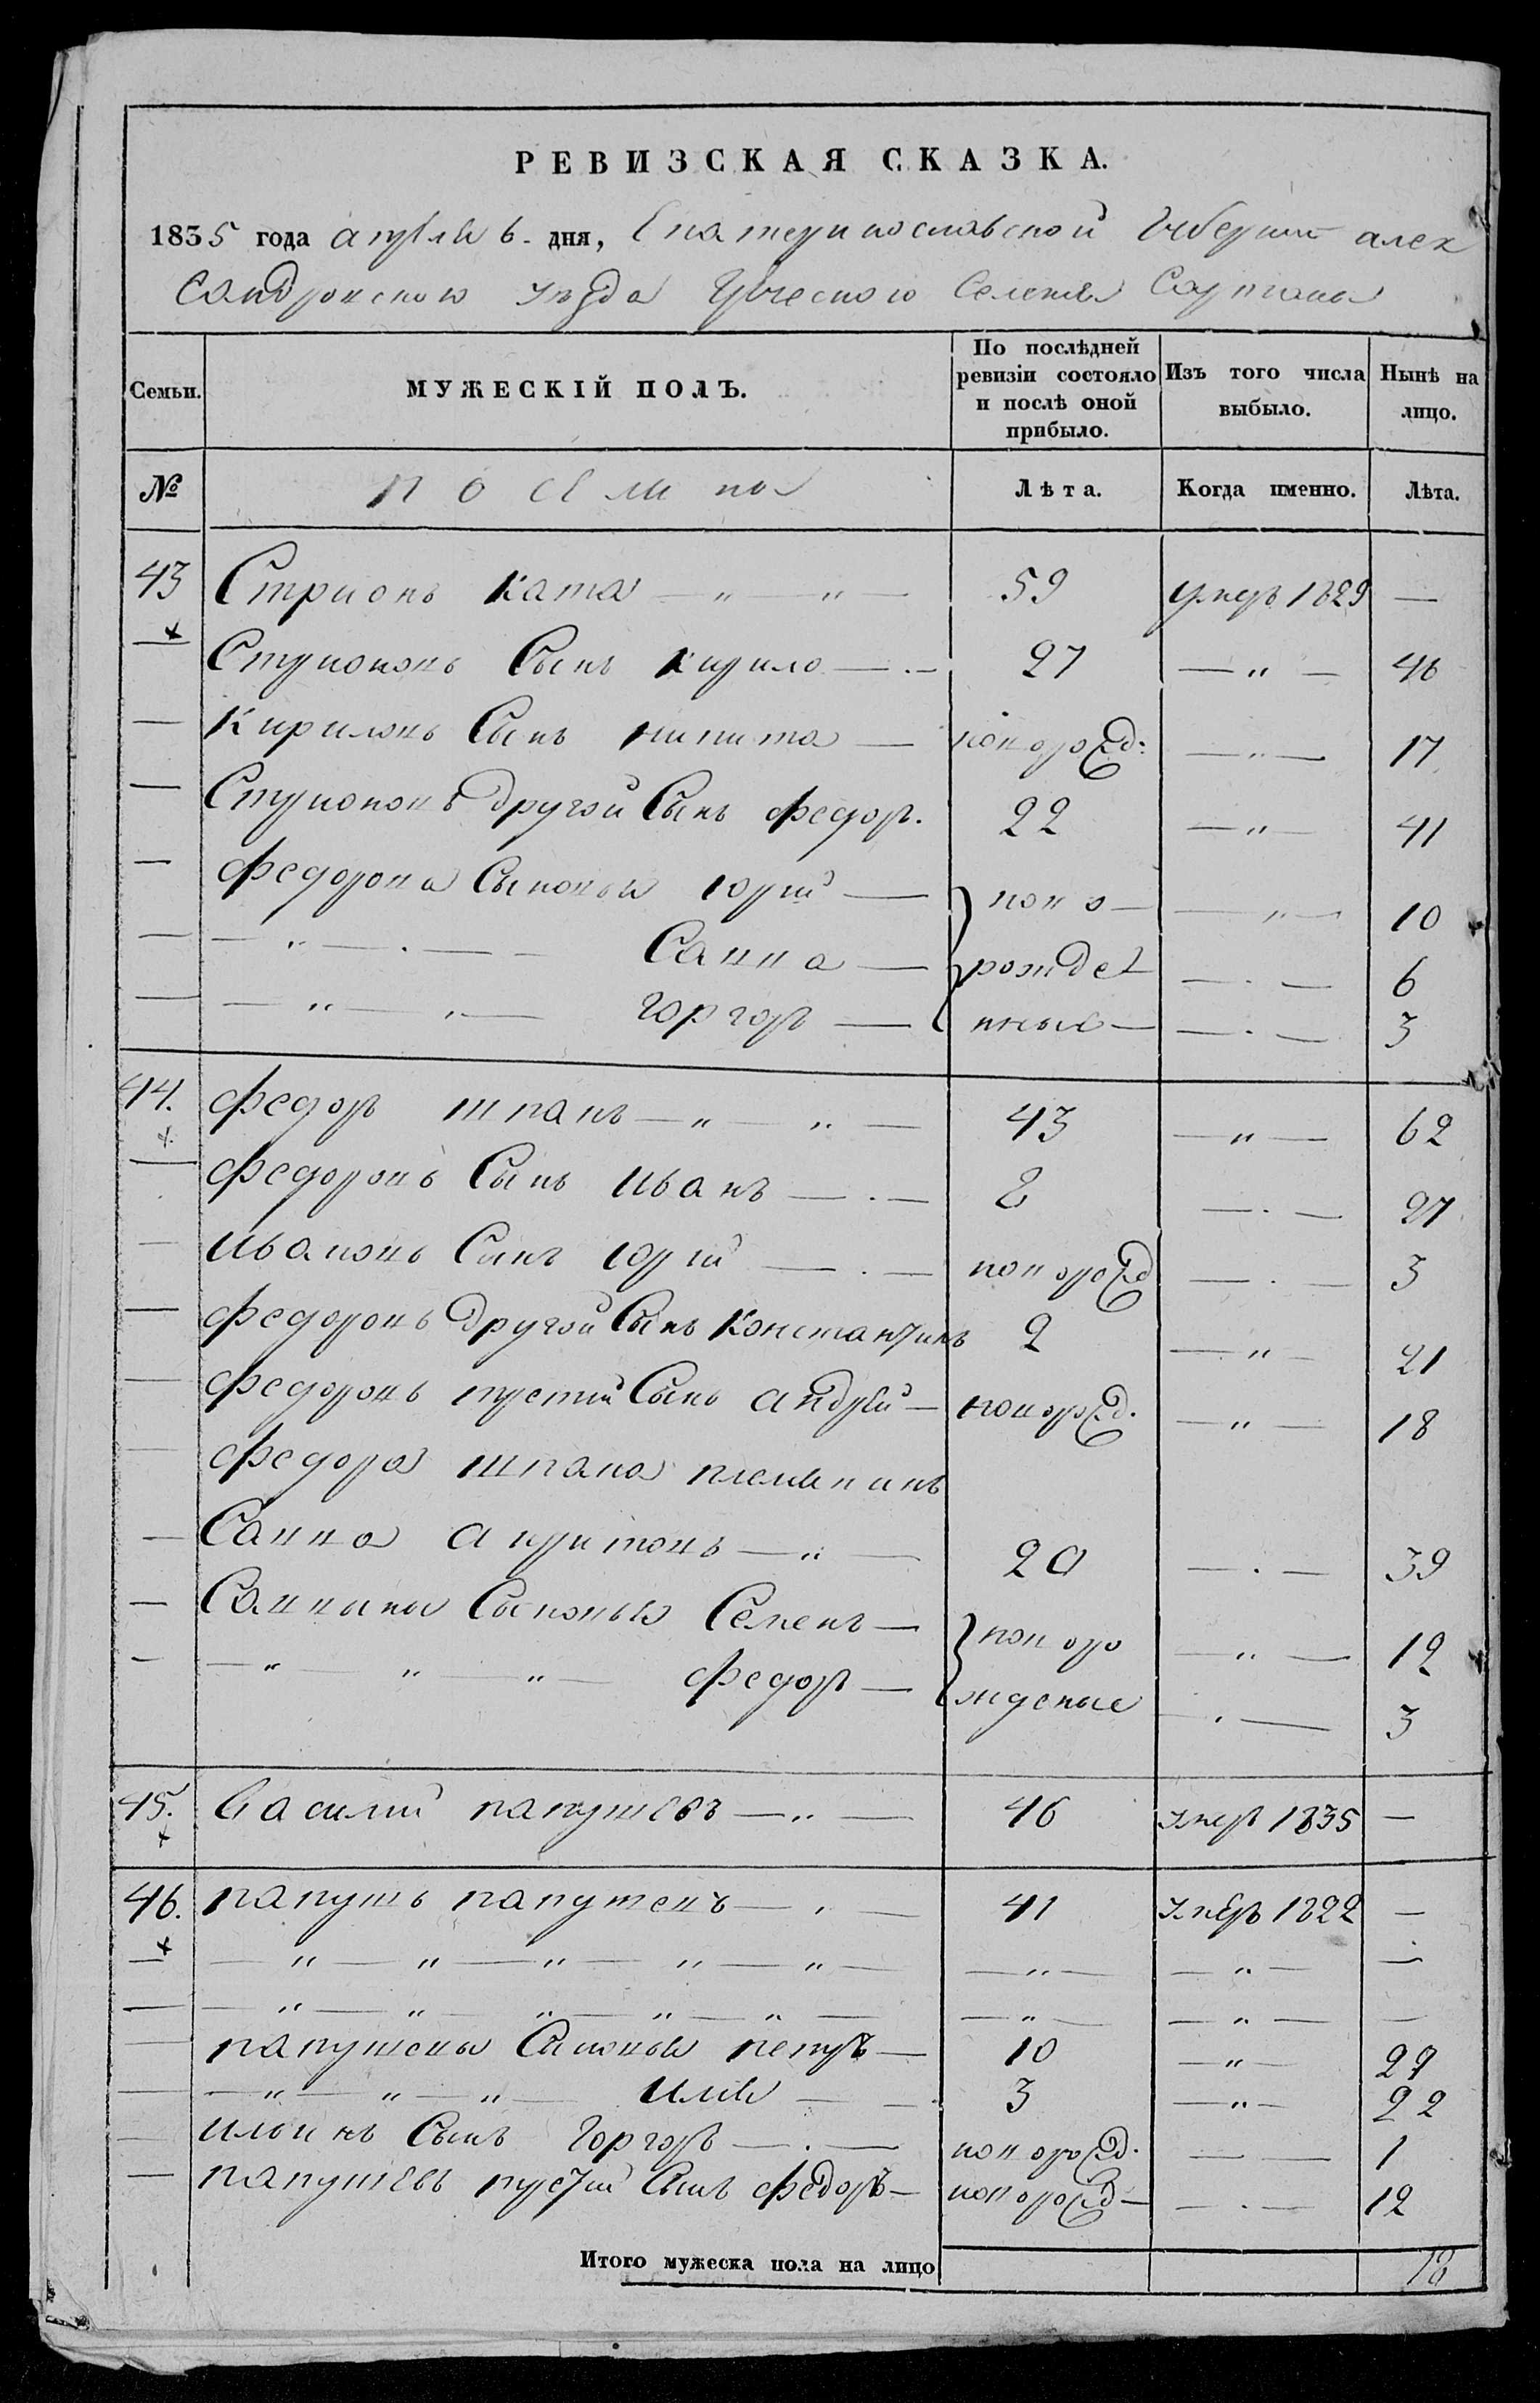 РЕВИЗСКАЯ СКАЗКА.
1835 года апреля 6. дня, Екатеринославской Губернии алек
сандровского уезда Греческого Селения Сартаны
Семьи. МУЖЕСКІЙ ПОЛЪ. По послѣдней ревизіи состояло и послѣ оной прибыло. Изъ того числа выбыло. Нынѣ на лицо.
№ Лѣта. Когда именно. Лѣта.
43 Стрионъ Ката — „ — „ — 59 умеръ 1829 —
— Стрионовъ Сынъ Кирило — . — 27 — „ — 46
— Кириловъ Сынъ никита — новорожд: — „ — 17
— Стрионовъ другой Сынъ федор. 22 — „ — 41
— федорова Сыновья юрий — } ново — „ — 10
— — „ — . — Савва — } рожден — . — 6
— — „ — „ — Горгоръ — } ныхъ — — . — 3
44. федоръ шпанъ — „ — „ — 43 — „ — 62
— федоровъ Сынъ иванъ — . — 8 — . — 27
— ивановъ Сынъ юрий — . — новорожд — . — 3
— федоровъ другой Сынъ Константинъ 2 — „ — 21
— федоровъ третий Сынъ андрей — новорожд. — „ — 18
федора шпана племянникъ
— Савва акритовъ — „ — 20 — . — 39
— Саввины Сыновья Семенъ — } новоро — „ — 12
— — „ — „ — „ — федоръ — } жденые — . — 3
45. василий папушевъ — „ — 46 умеръ 1835 —
46. папушъ папушевъ — . — 41 умеръ 1822 —
— — „ — „ — „ — „ — „ — — „ — — „ — —
— — „ — „ — „ — „ — „ — — „ — — „ — —
— папушевы Сыновья петръ — 10 — „ — 29
— — „ — „ — „ — илия — 3 — „ — 22
— ильинъ Сынъ Горгоръ — . — новорожд. — — 1
— папушевъ третий Сынъ федоръ — новорожд — — . — 12
Итого мужеска пола на лицо 18